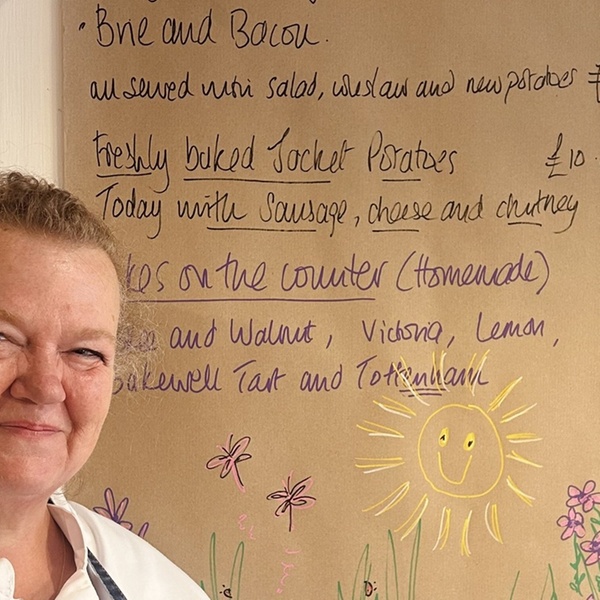 • Brie and Bacon.
all served with salad, coleslaw and new potatoes £
Freshly baked Jacket Potatoes £10.
Today with Sausage, cheese and chutney
kes on the counter (Homemade)
and Walnut, Victoria, Lemon,
Bakewell Tart and Tottenham